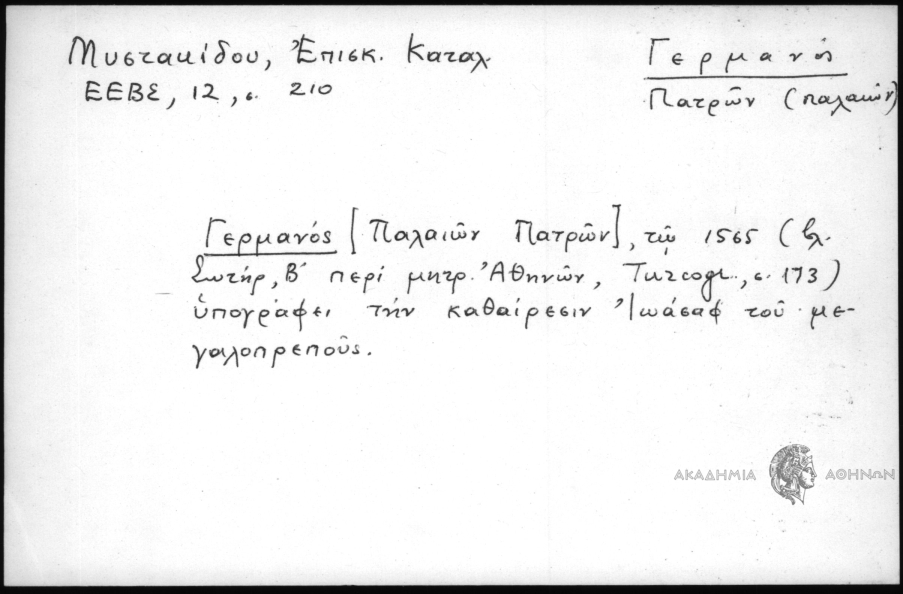 Μυστακίδου, Ἐπισκ. Καταλ.
ΕΕΒΣ, 12, σ. 210
Γερμανός
Πατρῶν (παλαιῶν)
Γερμανός [Παλαιῶν Πατρῶν], τῷ 1565 (βλ.
Σωτήρ, Β΄ περί μητρ. Ἀθηνῶν, Turcogr., σ. 173)
ὑπογράφει τήν καθαίρεσιν Ἰωάσαφ τοῦ με-
γαλοπρεποῦς.
ΑΚΑΔΗΜΙΑ ΑΘΗΝΩΝ